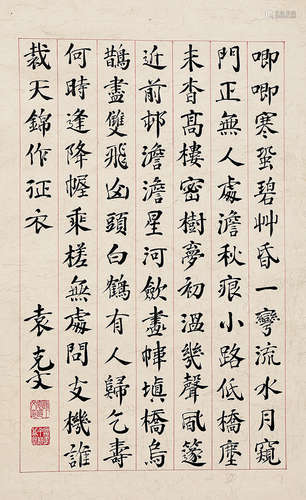 唧唧寒蛩碧艸昏一彎流水月窺
門正無人處澹秋痕小路低橋塵
未杳高樓密樹夢初溫幾聲風篴
近前邨澹澹星河斂畫幃填橋烏
鵲盡雙飛山頭白鶴有人歸乞壽
何時逢降幄乘槎無處問支機誰
裁天錦作征衣
袁克文